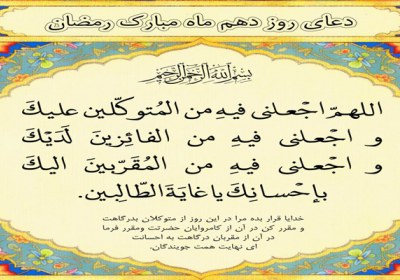 دعای روز دهم ماه مبارک رمضان
بسم الله الرحمن الرحیم
اللهمّ اجْعلنی فیهِ من المُتوکّلین علیكَ
و اجْعلنی فیهِ من الفائِزینَ لَدَیْكَ
و اجْعلنی فیهِ من المُقَرّبینَ الیكَ
بإحْسانِكَ یا غایَةَ الطّالِبین.
خدایا قرار بده مرا در این روز از متوکلان بدرگاهت
و مقرر کن در آن از کامروایان حضرتت ومقرر فرما
در آن از مقربان درگاهت به احسانت
ای نهایت همت جویندگان.